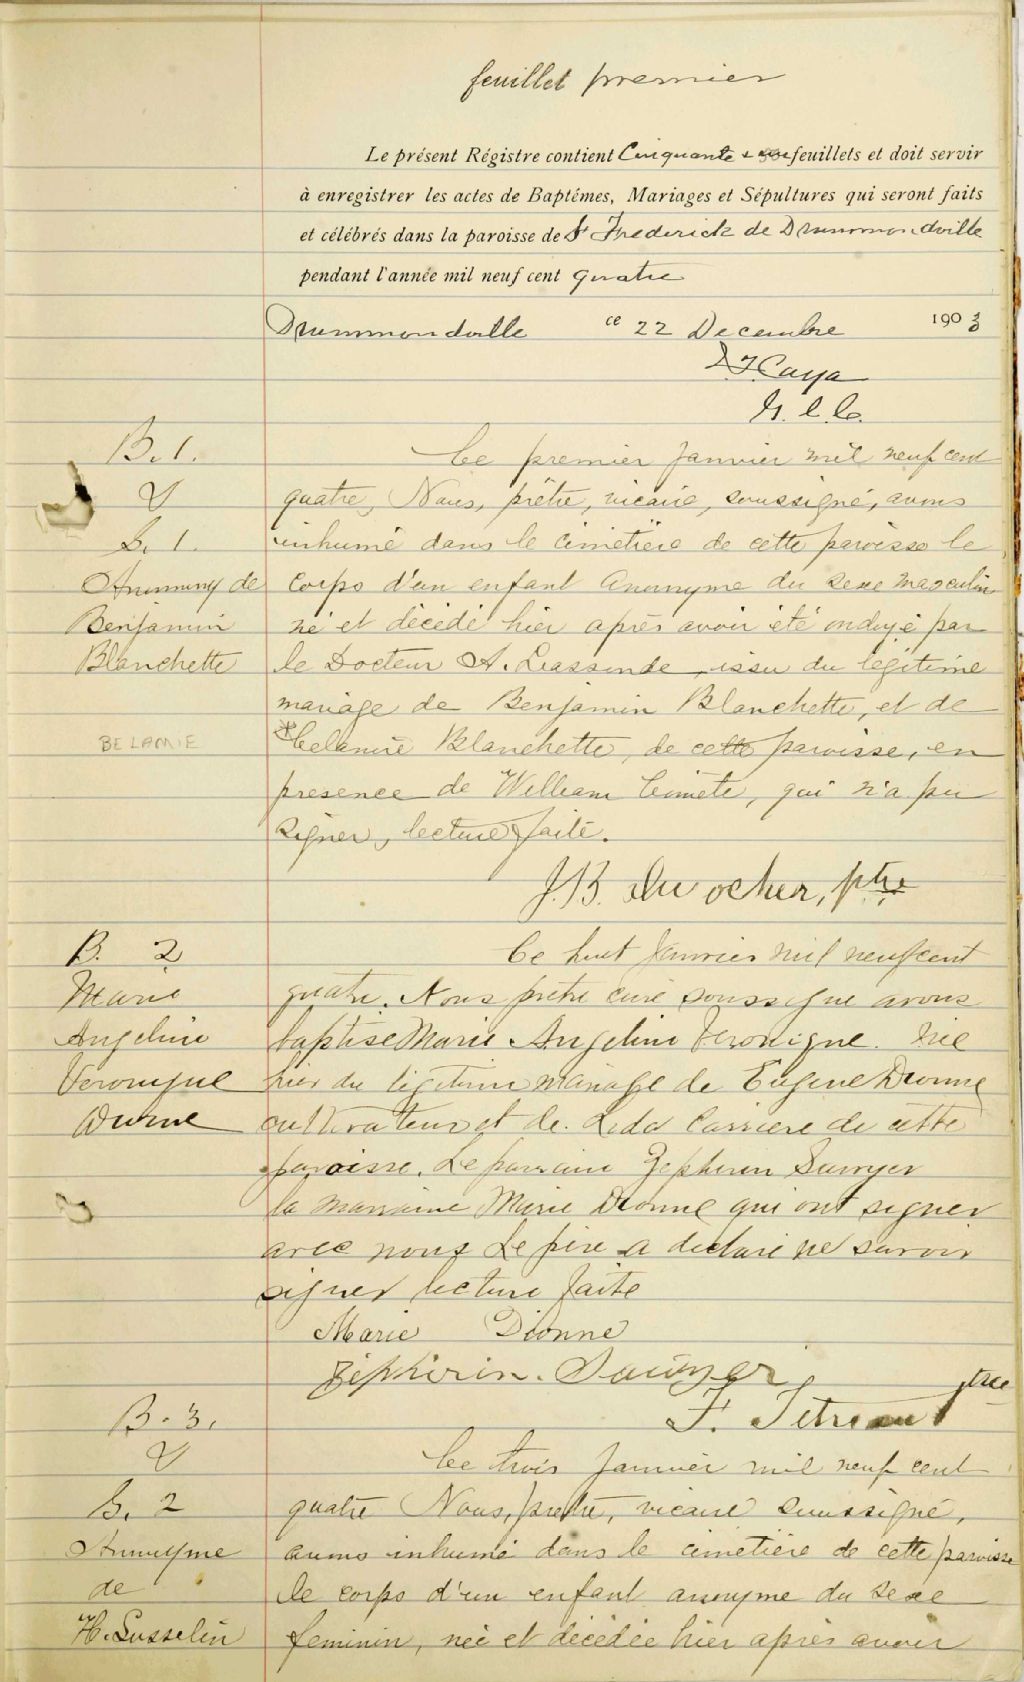 feuillet premier
Le présent Régistre contient Cinquante + feuillets et doit servir
à enregistrer les actes de Baptémes, Mariages et Sépultures qui seront faits
et célébrés dans la paroisse de St Frederick de Drummondville
pendant l'année mil neuf cent quatre
Drummondville ce 22 Decembre 1903
Caya
B. 1. Ce premier Janvier mil neuf cent
& quatre, Nous, prêtre, vicaire, soussigné, avons
S. 1. inhumé dans le cimetière de cette paroisse le
Anonimy de corps d'un enfant anonyme du sexe masculin
Benjamin né et décédé hier après avoir été ondoyé par
Blanchette le Docteur A. Lassonde, issu du légitime
mariage de Benjamin Blanchette, et de
BELAMIE Blanchette, de cette paroisse, en
presence de William, qui n'a pu
signer, lecture faite.
J.B. Durocher, ptre
B. 2 Ce huit Janvier mil neuf cent
Marie quatre. Nous prêtre curé soussigne avons
Angelina baptise Marie Angelina Veronique. née
Veronique hier du légitime mariage de Eugene Dionne
Dionne cultivateur et de Carriere de cette
paroisse. Le parrain Zepherin Sawyer
la marraine Marie Dionne qui ont signer
avec nous Le père a declaré ne savoir
signer lecture faite
Marie Dionne
Zéphirin
B. 3. F. Tetreau ptre
& Ce trois Janvier mil neuf cent
S. 2 quatre Nous, prêtre, vicaire soussigné,
Anonyme avons inhumé dans le cimetière de cette paroisse
de le corps d'un enfant anonyme du sexe
H. Gosselin feminin, née et décédée hier après avoir